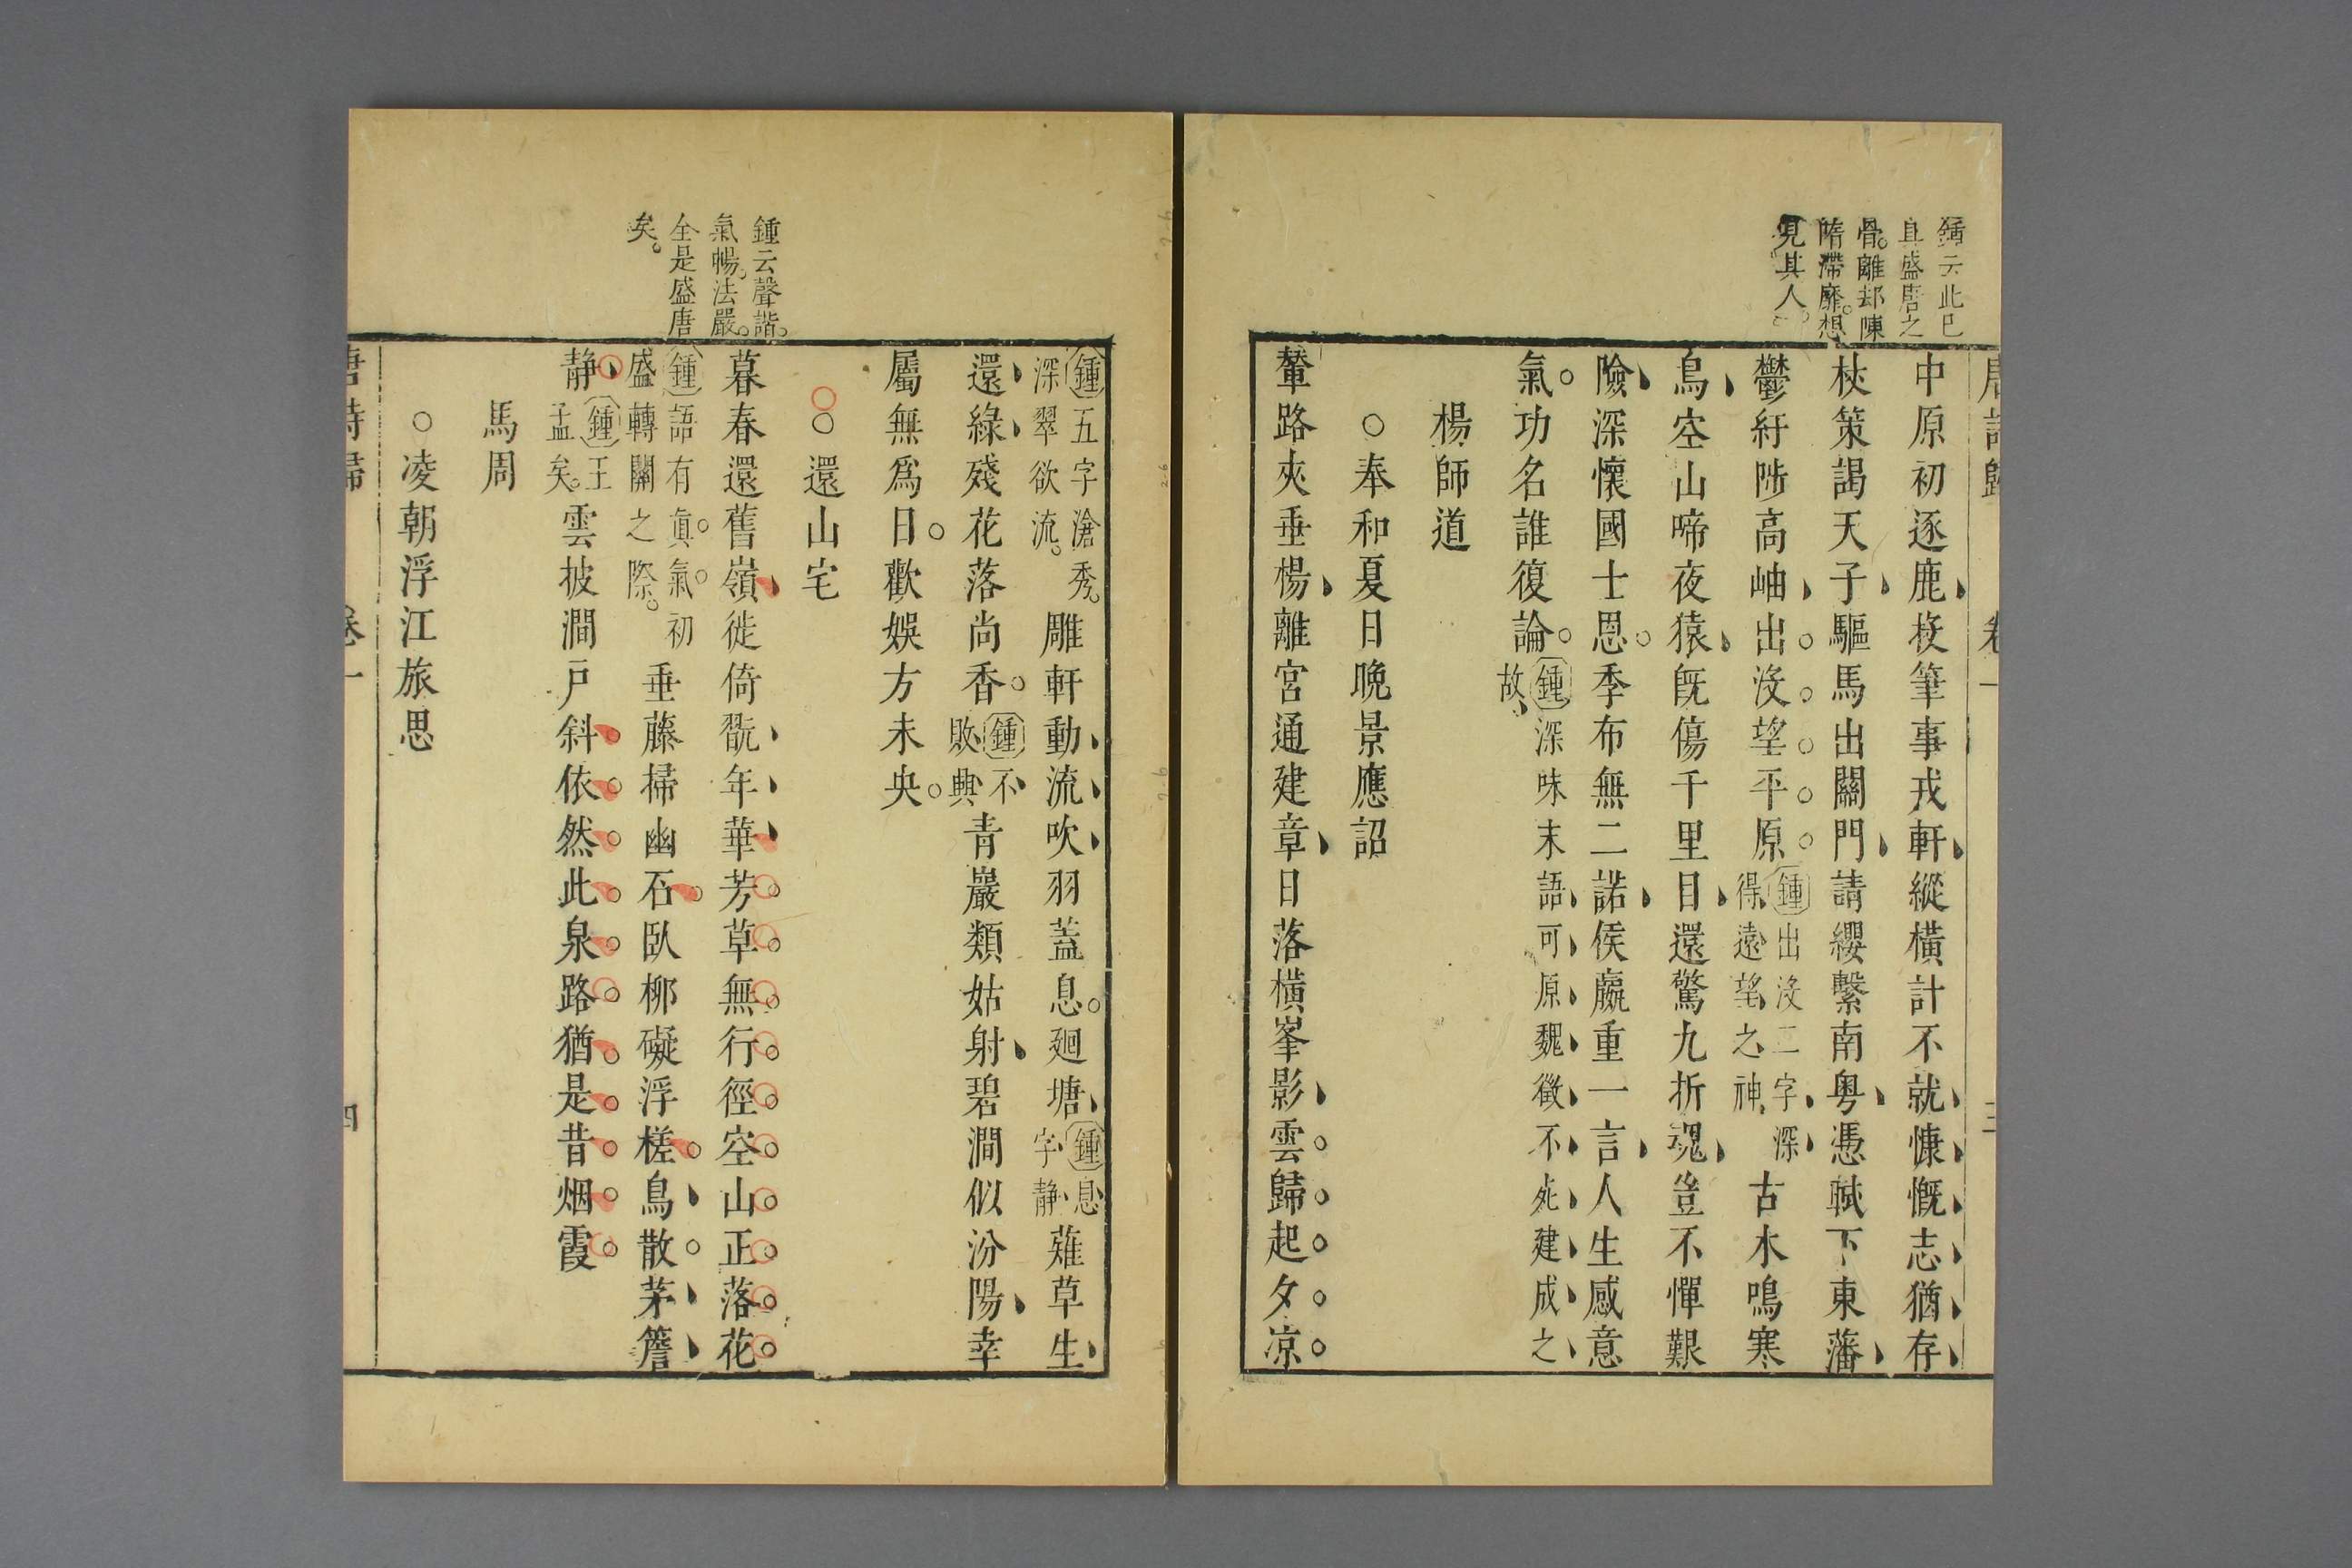 鍾云此已
具盛唐之
骨。離却陳
隋滯靡。想
見其人。
唐詩歸　卷一　三
中原初逐鹿投筆事戎軒縱橫計不就慷慨志猶存
杖策謁天子驅馬出關門請纓繫南粵憑軾下東藩
鬱紆陟高岫出没望平原
鍾出没二字深
得遠望之神
古木鳴寒
鳥空山啼夜猿旣傷千里目還驚九折魂豈不憚艱
險深懷國士恩季布無二諾侯嬴重一言人生感意
氣功名誰復論
鍾深味末語可原魏徵不死建成之
故
楊師道
○奉和夏日晚景應詔
輦路夾垂楊離宮通建章日落橫峯影雲歸起夕凉
鍾云聲諧。
氣暢。法嚴。
全是盛唐
矣。
鍾五字滄秀。
深翠欲流。
雕軒動流吹羽蓋息廻塘
鍾息
字静
薙草生
還綠殘花落尚香
鍾不
敗興
青巖類姑射碧澗似汾陽幸
屬無爲日歡娛方未央
○○還山宅
暮春還舊嶺徙倚翫年華芳草無行徑空山正落花
鍾語有真。氣。初
盛轉關之際。
垂藤掃幽石臥柳礙浮槎鳥散茅簷
静
鍾王
孟矣。
雲披澗戸斜依然此泉路猶是昔烟霞
馬周
○凌朝浮江旅思
唐詩歸　卷一　四